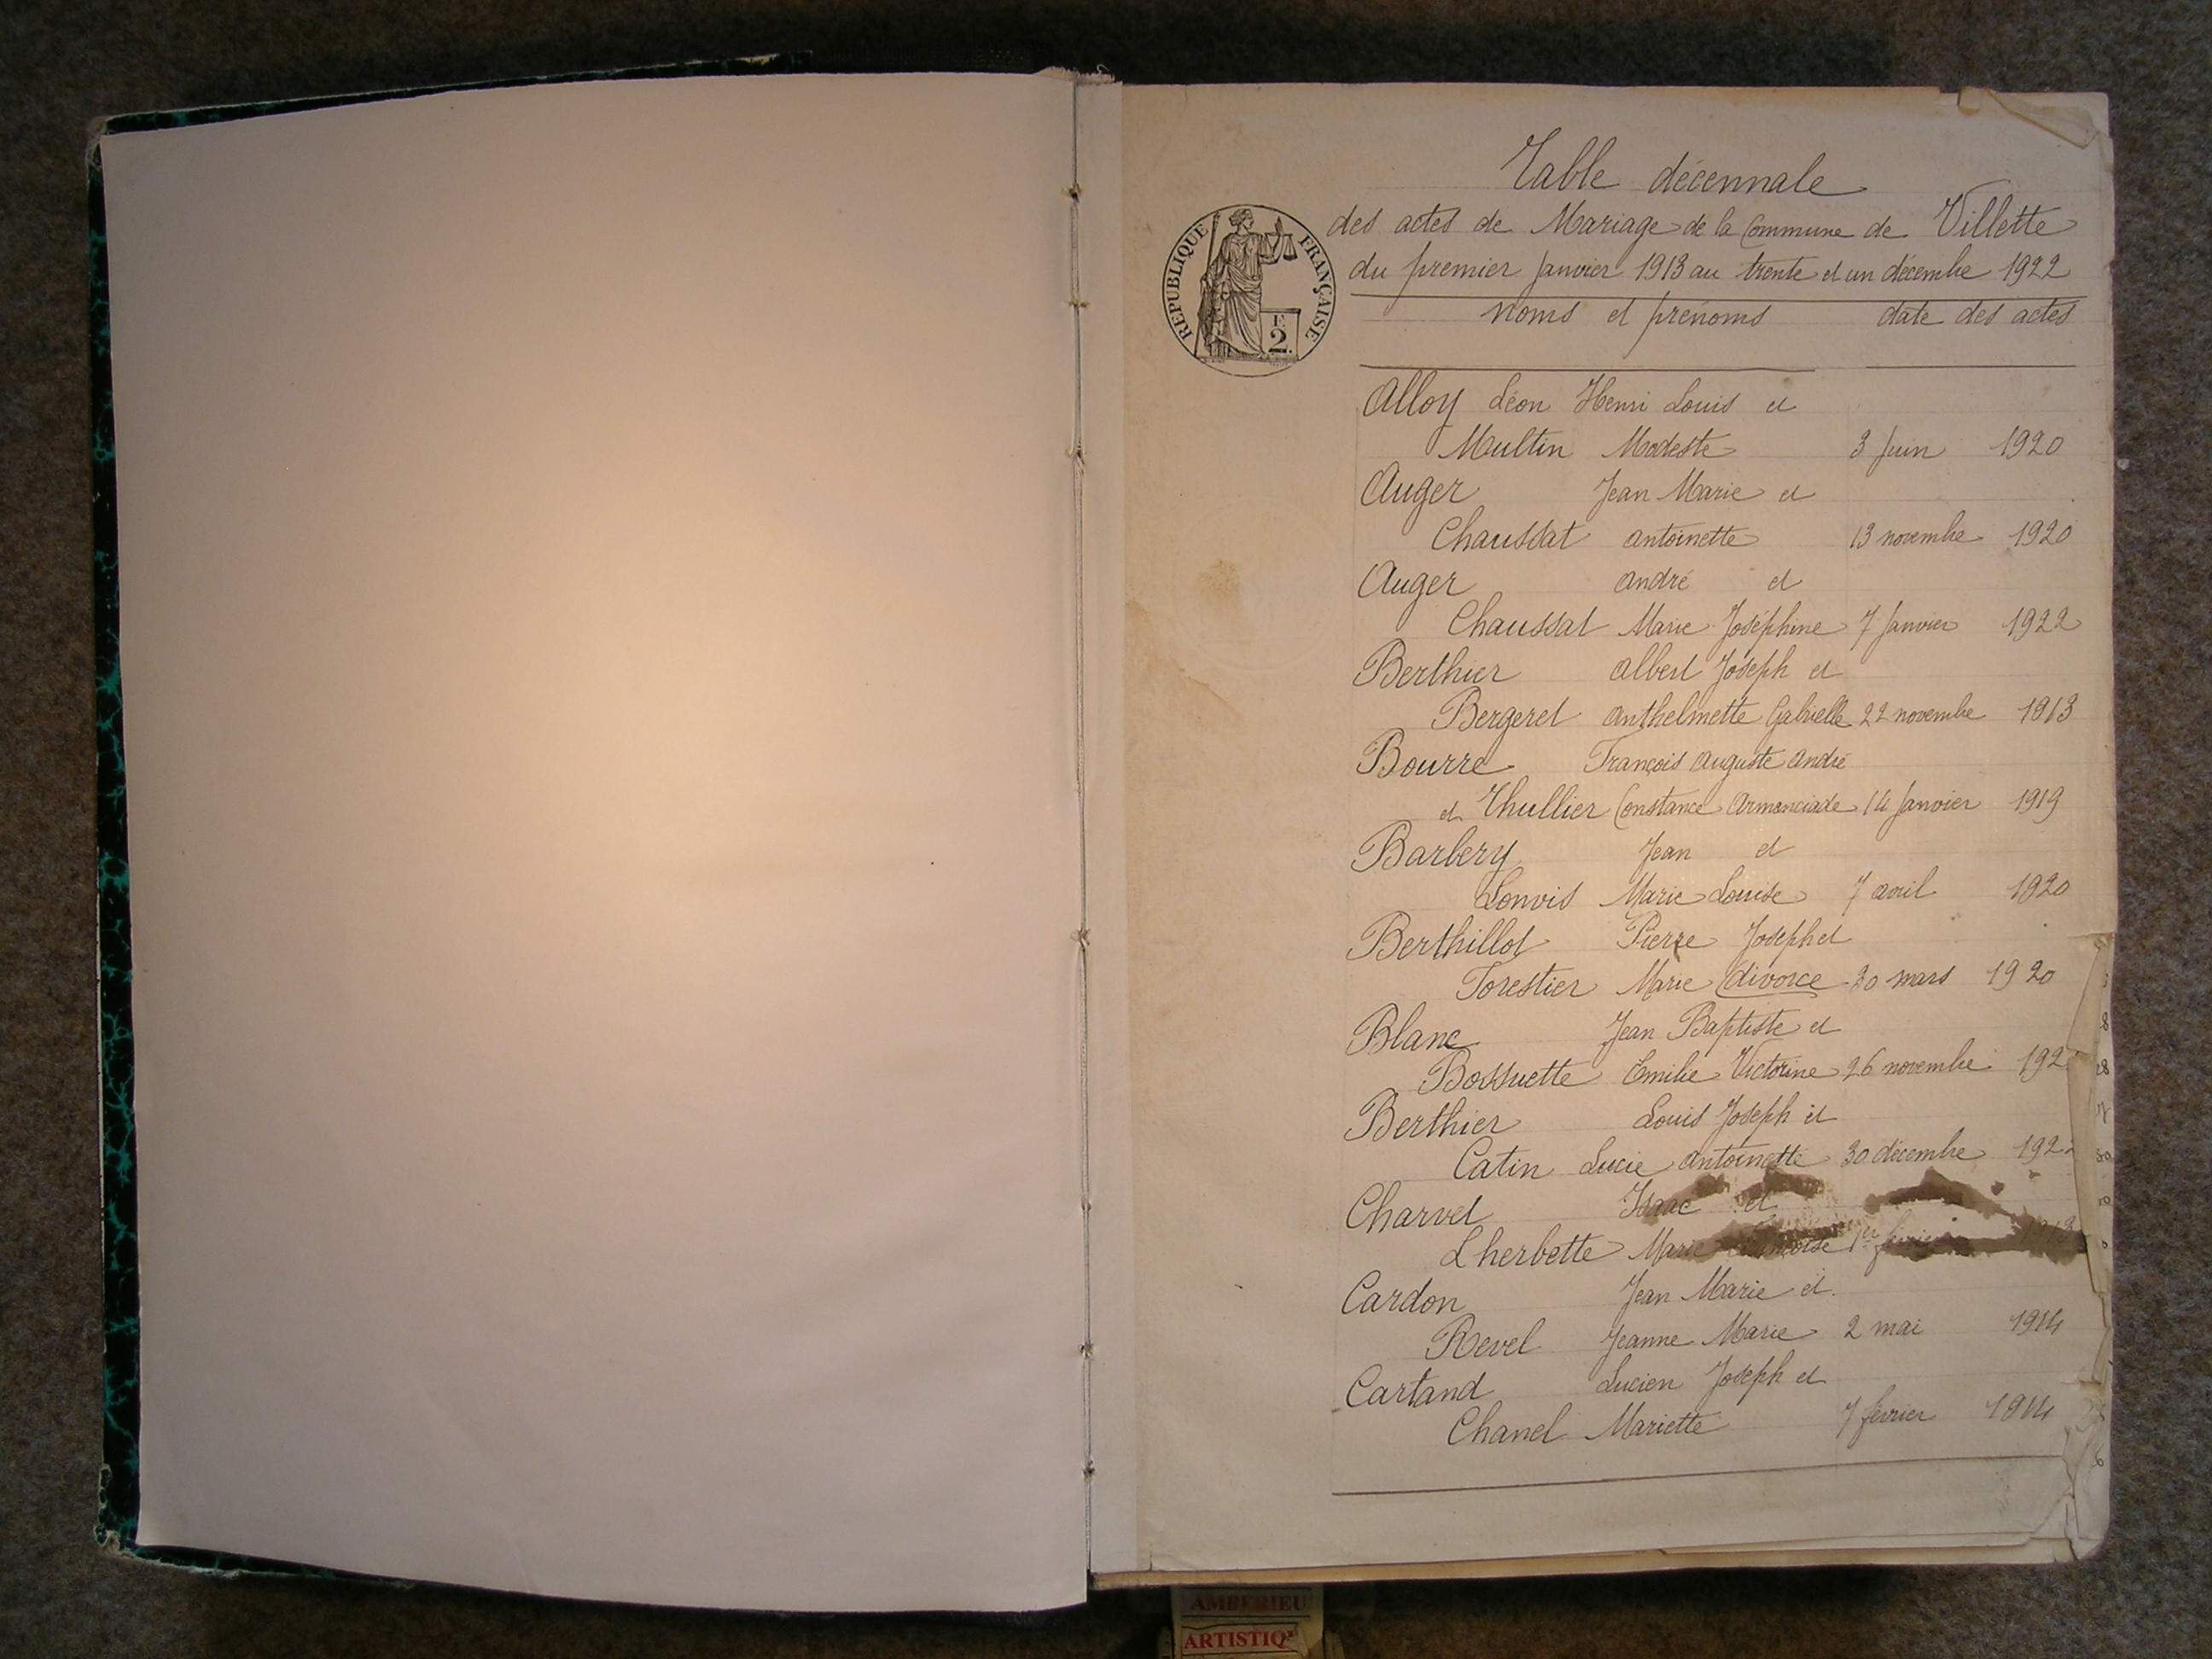 Table décennale
des actes de Mariage de la Commune de Villette
du premier Janvier 1913 au trente et un décembre 1922
RÉPUBLIQUE FRANÇAISE
F.
2.
noms et prénoms date des actes
Alloy Léon Henri Louis et
Multin Modeste 3 Juin 1920
Auger Jean Marie et
Chaussat antoinette 13 novembre 1920
Auger andré et
Chaussat Marie Joséphine 7 Janvier 1922
Berthier albert Joseph et
Bergeret anthelmette Gabrielle 22 novembre 1913
Bourre François Auguste André
et Thullier Constance Armanciade 14 Janvier 1919
Barbery Jean et
Lonvis Marie Louise 7 avril 1920
Berthillot Pierre Joseph et
Forestier Marie (divorce 30 mars 1920
Blanc Jean Baptiste et
Bossuette Emilie Victorine 26 novembre 192
Berthier Louis Joseph et
Catin Lucie antoinette 30 décembre 192
Charvet Isaac et
Lherbette Marie 1er
Cardon Jean Marie et
Revel Jeanne Marie 2 mai 1914
Cartand Lucien Joseph et
Chanel Mariette 7 février 1914
AMBERIEU
ARTISTIQ